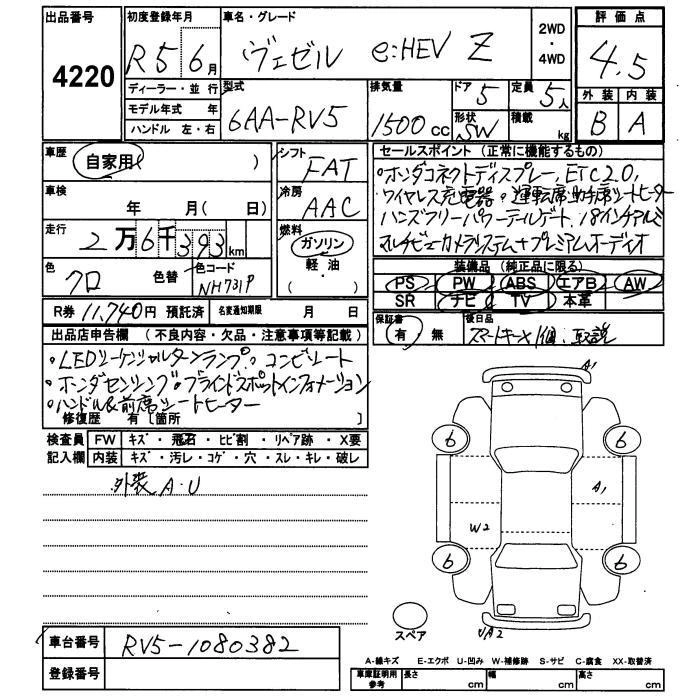 出品番号 4220
初度登録年月 R5 6月
車名・グレード ヴェゼル e:HEV Z
2WD・4WD
評価点 4.5
外装 内装
B A
ディーラー・並行
モデル年式 年
ハンドル 左・右
型式 6AA-RV5
排気量 1500cc
ドア 5
形状 SW
定員 5人
積載 kg
車歴 自家用( )
車検 年 月( 日)
走行 2万6千393km
色 クロ 色替
色コード NH731P
シフト FAT
冷房 AAC
燃料 ガソリン・軽油 ( )
セールスポイント (正常に機能するもの)
・ホンダコネクトディスプレー, ETC2.0,
ワイヤレス充電器・運転席助手席シートヒーター
ハンズフリーパワーテールゲート, 18インチアルミ
マルチビューカメラシステム+プレミアムオーディオ
装備品 (純正品に限る)
PS PW ABS エアB AW
SR ナビ TV 本革
R券 11,740円 預託済
名変通知期限 月 日
保証書 有・無
後日品 スマートキー×1個、取説
出品店申告欄 (不良内容・欠品・注意事項等記載)
・LEDシーケンシャルターンランプ・コンビシート
・ホンダセンシング・ブラインドスポットインフォメーション
・ハンドル&前席シートヒーター
修復歴 有 〔箇所 〕
検査員記入欄
FW キズ・飛石・ヒビ割・リペア跡・X要
内装 キズ・汚レ・コゲ・穴・スレ・キレ・破レ
外装A・U
A1
6 6
A1
W2
6 6
UA2
スペア
車台番号 RV5-1080382
登録番号
A-線キズ E-エクボ U-凹み W-補修跡 S-サビ C-腐食 XX-取替済
車庫証明用参考 長さ cm 幅 cm 高さ cm